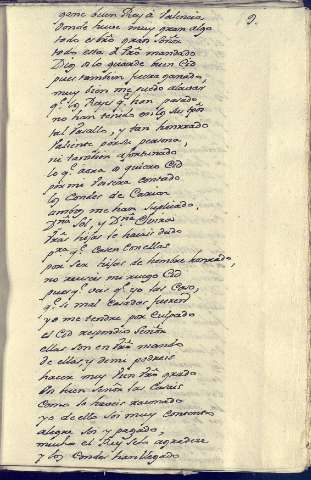 9.
gane buen Rey á Valencia
donde huve muy gran algo
todo es vrõ gran Señor
todo esta á vrõ mandado
Dios os lo guarde buen Cid
pues tambien fuera ganado,
muy bien me puedo alavar
q.e los Reyes q.e han pasado
no han tenido en los sus tpõs
tal Vasallo, y tan honrrado
Valiente por su persona,
ni tambien afortunado
lo q.e aora os quiero Cid
por mi vos sera contado
los Condes de Carrion
ambos me han suplicado,
D.ña Sol, y D.ña Elvira
vrãs hijas les hayais dado
p.ra q.e casen con ellas
por ser hijas de hombre honrrado,
no recivais mi ruego Cid
pues q.e veis q.e yo las caso,
q.e si mal casadas fueren
yo me tendre por culpado
el Cid respondio Señor
ellas son en vrõ mando
de ellas, y de mi podreis
hacer muy bien vrõ grado
vos bien Señor las casais
como lo haveis razonado
yo de ello soi muy contento
alegre soi y pagado,
mucho el Rey se lo agradece
y los Condes han llegado